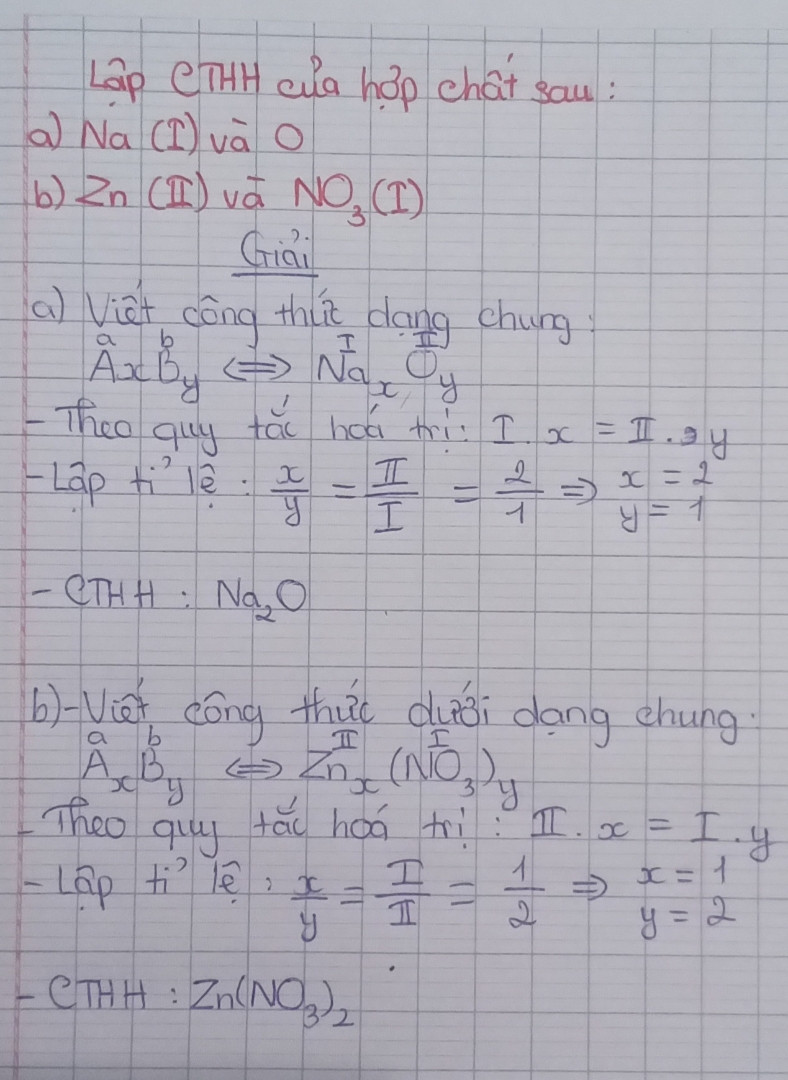 Lập CTHH của hợp chất sau:
a) Na (I) và O
b) Zn (II) và NO₃ (I)
Giải
a) Viết công thức dạng chung:
a b I II
AxBy ⟺ NaxOy
- Theo quy tắc hoá trị: I. x = II. y
- Lập tỉ lệ: x/y = II/I = 2/1 ⇒ x = 2
y = 1
- CTHH : Na₂O
b) - Viết công thức dưới dạng chung:
a b II I
AxBy ⟺ Znx(NO₃)y
- Theo quy tắc hoá trị : II. x = I. y
- Lập tỉ lệ : x/y = I/II = 1/2 ⇒ x = 1
y = 2
- CTHH : Zn(NO₃)₂